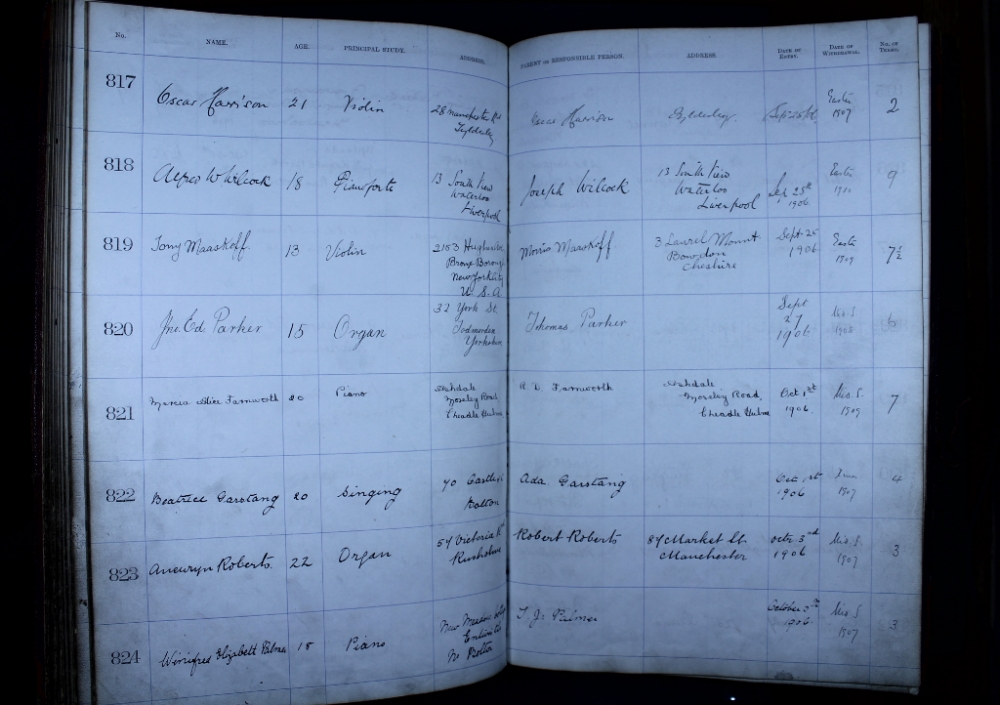 No. NAME. AGE. PRINCIPAL STUDY. ADDRESS. PARENT or RESPONSIBLE PERSON. ADDRESS. DATE OF ENTRY. DATE OF WITHDRAWAL. NO. OF TERMS.
817 Oscar Harrison 21 Violin 28 Manchester Rd
Tyldesley
Oscar Harrison Tyldesley
Easter
1907
2
818 Alfred W Wilcock 18 Pianoforte 13 South View
Waterloo
Liverpool
Joseph Wilcock 13 South View
Waterloo
Liverpool
Sep 25th
1906
Easter
9
819 Tony Maaskoff 13 Violin 2153
Bronx Borough
New York City
U. S. A
Morris Maaskoff 3 Laurel Mount
Bowdon
Cheshire
Sept 25
1906
Easter
1909
7½
820 Jno. Ed Parker 15 Organ 32 York St.
Todmorden
Yorkshire
Thomas Parker
Sept
27
1906
Mis. S
1908
6
821 Marcia Alice Farnworth 20 Piano
Moseley Road
Cheadle Hulme
Farnworth
Moseley Road,
Cheadle Hulme
Oct 1st
1906
Mis. S.
1909
7
822 Beatrice Garstang 20 Singing 70
Bolton
Ada Garstang
Oct 1st
1906
1907
4
823 Aneuryn Roberts. 22 Organ 54 Victoria Rd
Rusholme
Robert Roberts 87 Market St.
Manchester
Octr 3rd
1906
Mis. S.
1907
3
824 Winifred Elizabeth Palmer 18 Piano
Nr Bolton
T. J. Palmer
October 3rd
1906.
Mis S
1907
3